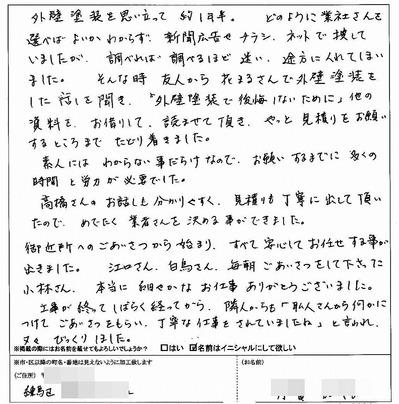 外壁塗装を思い立って 約1年半。 どのように業社さんを
選べばよいかわからず、新聞広告やチラシ、ネットで捜して
いましたが、調べれば 調べるほど 迷い、途方に入れてしまい
ました。 そんな時 友人から 花まるさんで外壁塗装を
した話しを聞き、「外壁塗装で後悔しないために」他の
資料を、お借りして、読ませて頂き、やっと見積りをお願い
するところまで たどり着きました。
素人には わからない事だらけなので、お願いするまでに 多くの
時間と労力が必要でした。
高橋さんの お話しも分かりやすく、見積りも丁寧に出して頂い
たので、めでたく 業者さんを 決める事ができました。
御近所へのごあいさつから始まり、すべて安心してお任せする事が
出きました。 江口さん、白鳥さん、毎朝ごあいさつをして下さった
小林さん、本当に細やかなお仕事ありがとうございました。
工事が終ってしばらく経ってから、隣人からも「私人さんから何かに
つけて ごあいさつをもらい、丁寧な仕事をされていましたね」と言われ、
びっくりしました。
※掲載の際にはお名前を載せてもよろしいでしょうか? □はい ☑名前はイニシャルにして欲しい
※市・区以降の町名・番地は見えないように加工致します
(ご住所) 〒
(お名前)
練馬区